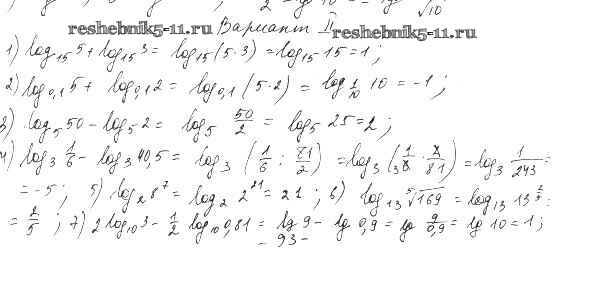 2 = lg 10 = = lg √10
reshebnik5-11.ru Вариант II reshebnik5-11.ru
1) log₁₅ 5 + log₁₅ 3 = log₁₅ (5·3) = log₁₅ 15 = 1 ;
2) log₀,₁ 5 + log₀,₁ 2 = log₀,₁ (5·2) = log_{1/10} 10 = -1 ;
3) log₅ 50 - log₅ 2 = log₅ 50/2 = log₅ 25 = 2 ;
4) log₃ 1/6 - log₃ 40,5 = log₃ (1/6 : 81/2) = log₃ (1/6 · 2/81) = log₃ 1/243 =
= -5 ; 5) log₂ 8⁷ = log₂ 2²¹ = 21 ; 6) log₁₃ ⁵√169 = log₁₃ 13^{2/5} =
= 2/5 ; 7) 2 log₁₀ 3 - 1/2 log₁₀ 0,81 = lg 9 - lg 0,9 = lg 9/0,9 = lg 10 = 1 ;
- 93 -